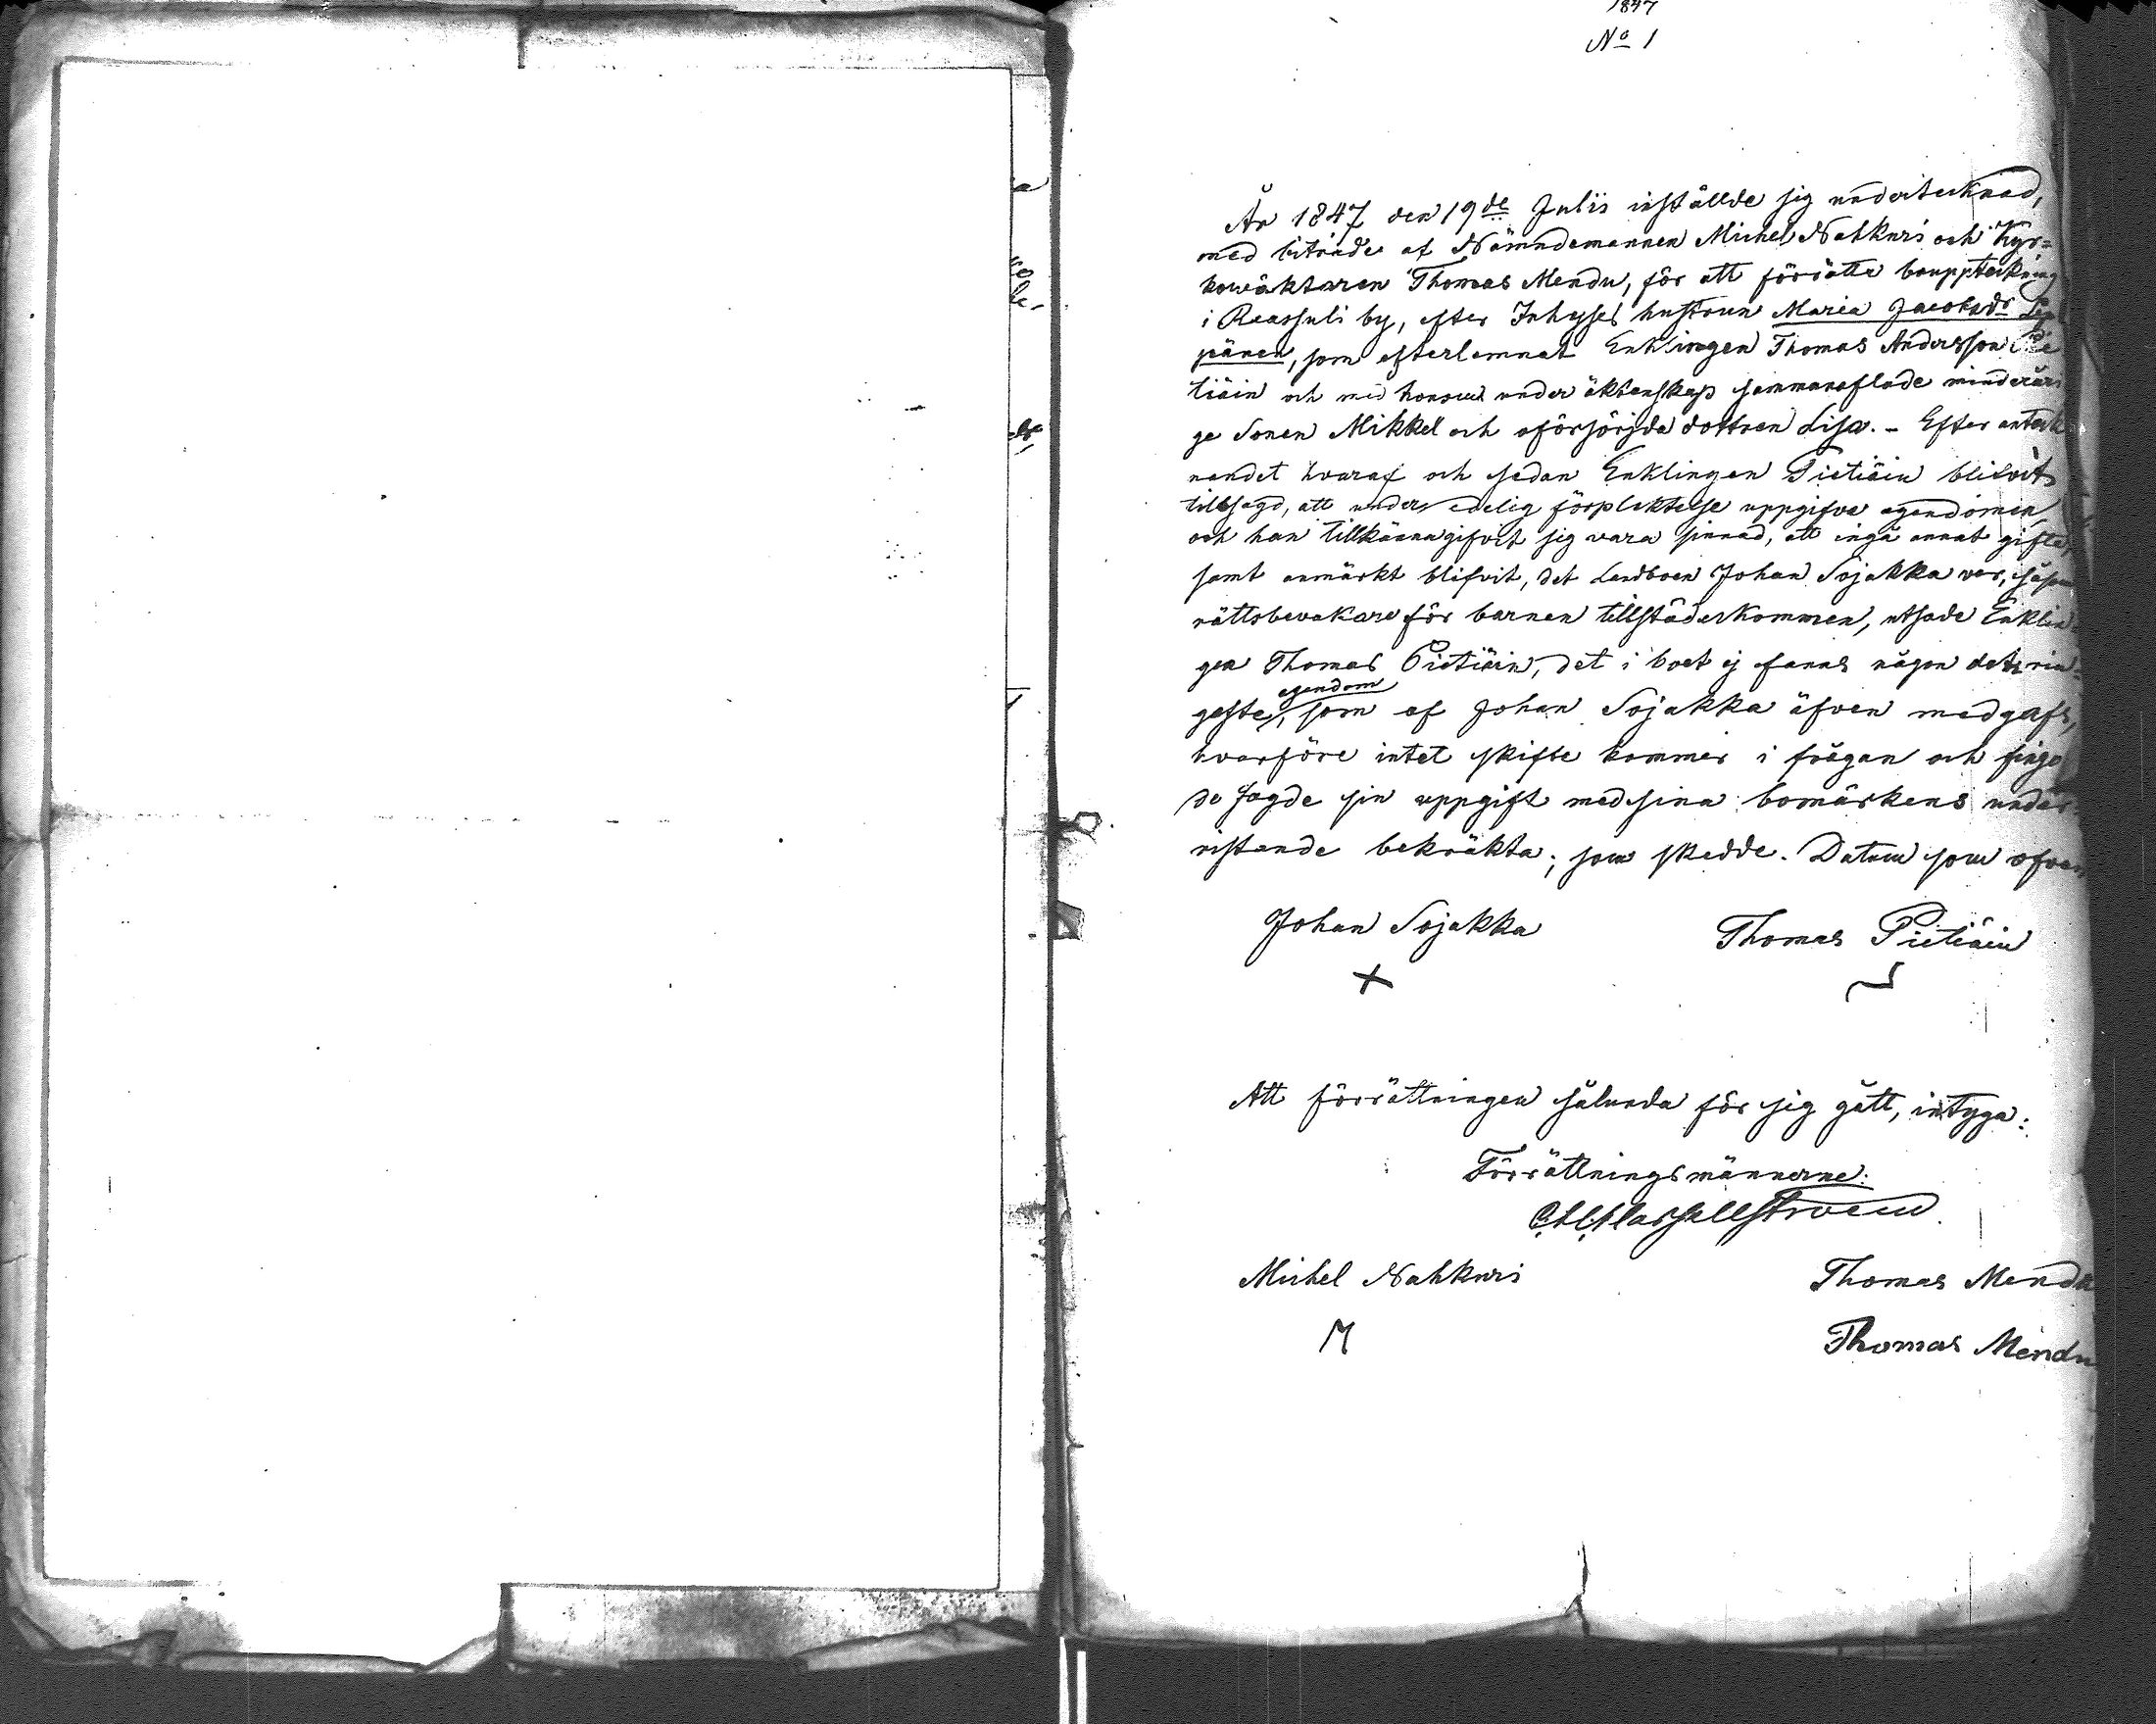 1847
No 1
År 1847 den 19de Julii inställde sig undertecknad,
med biträde af Nämndemannen Michel Nahkuri och Kyr=
kowäktaren Thomas Mendu, för att förrätta bouppteckning
i Reassuli by, efter Inhyses hustrun Maria Jacobsdr Lep
pänen, som efterlemnat Enklingen Thomas Andersson Pie
tiäin och med honom under äktenskap sammanaflade minderåri
ge Sonen Mikkel och oförsörjda dottren Lisa. - Efter anteck
nandet hvaraf och sedan Enklingen Pietiäin blifvit
tillsagd, att under edelig förpliktelse uppgifva egendomen,
och han tillkännagifvit sig vara sinnad, att ingå annat gifte,
samt anmärkt blifvit, det Landboen Johan Sojakka var, såsom
rättsbevakare för barnen tillstädeskommen, utsade Enklin=
gen Thomas Pietiäin, det i boet ej fanns någon det rin=
egendom
gaste, som af Johan Sojakka äfven medgafs,
hvarföre intet skifte kommer i frågan och fingo
de sagde sin uppgift med sina bomärkens under=
ristande bekräkta; som skedde. Datum som ofvan
Johan Sojakka Thomas Pietiäin
Att förrättningen sålunda för sig gått, intyga:
Förrättningsmännerne:
Michel Nahkuri Thomas Mendu
Thomas Mendu